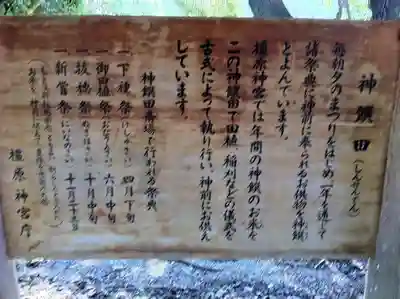 神饌田(しんせんでん)
毎朝夕のまつりをはじめ一年を通じて
諸祭典に神前に奉られるお供物を神饌
とよんでいます。
橿原神宮では年間の神饌のお米を
この神饌田で田植、稲刈などの儀式を
古式によって執り行い、神前にお供え
しています。
神饌田斎場で行われる祭典
一、下種祭 四月下旬
一、御田植祭 六月中旬
一、抜穂祭 十月中旬
一、新嘗祭 十一月二十三日
橿原神宮庁